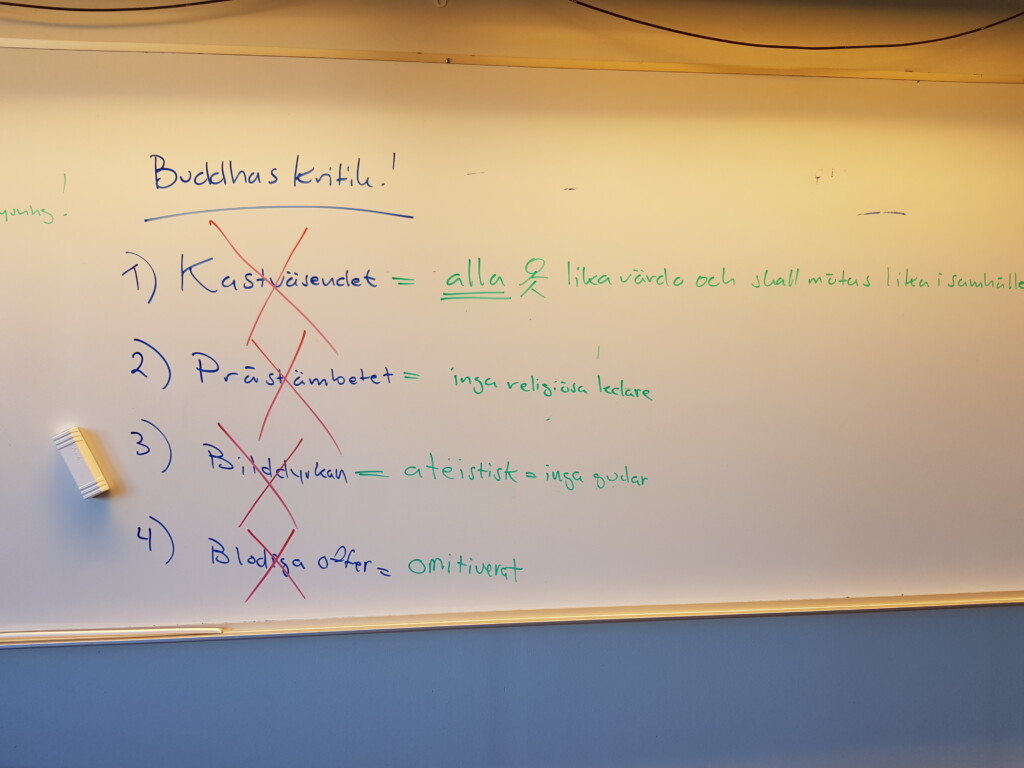 Buddhas kritik!
1) Kastväsendet = alla lika värda och skall mötas lika i samhälle
2) Prästämbetet = inga religiösa ledare
3) Bilddyrkan = atëistisk = inga gudar
4) Blodiga offer = omitiverat